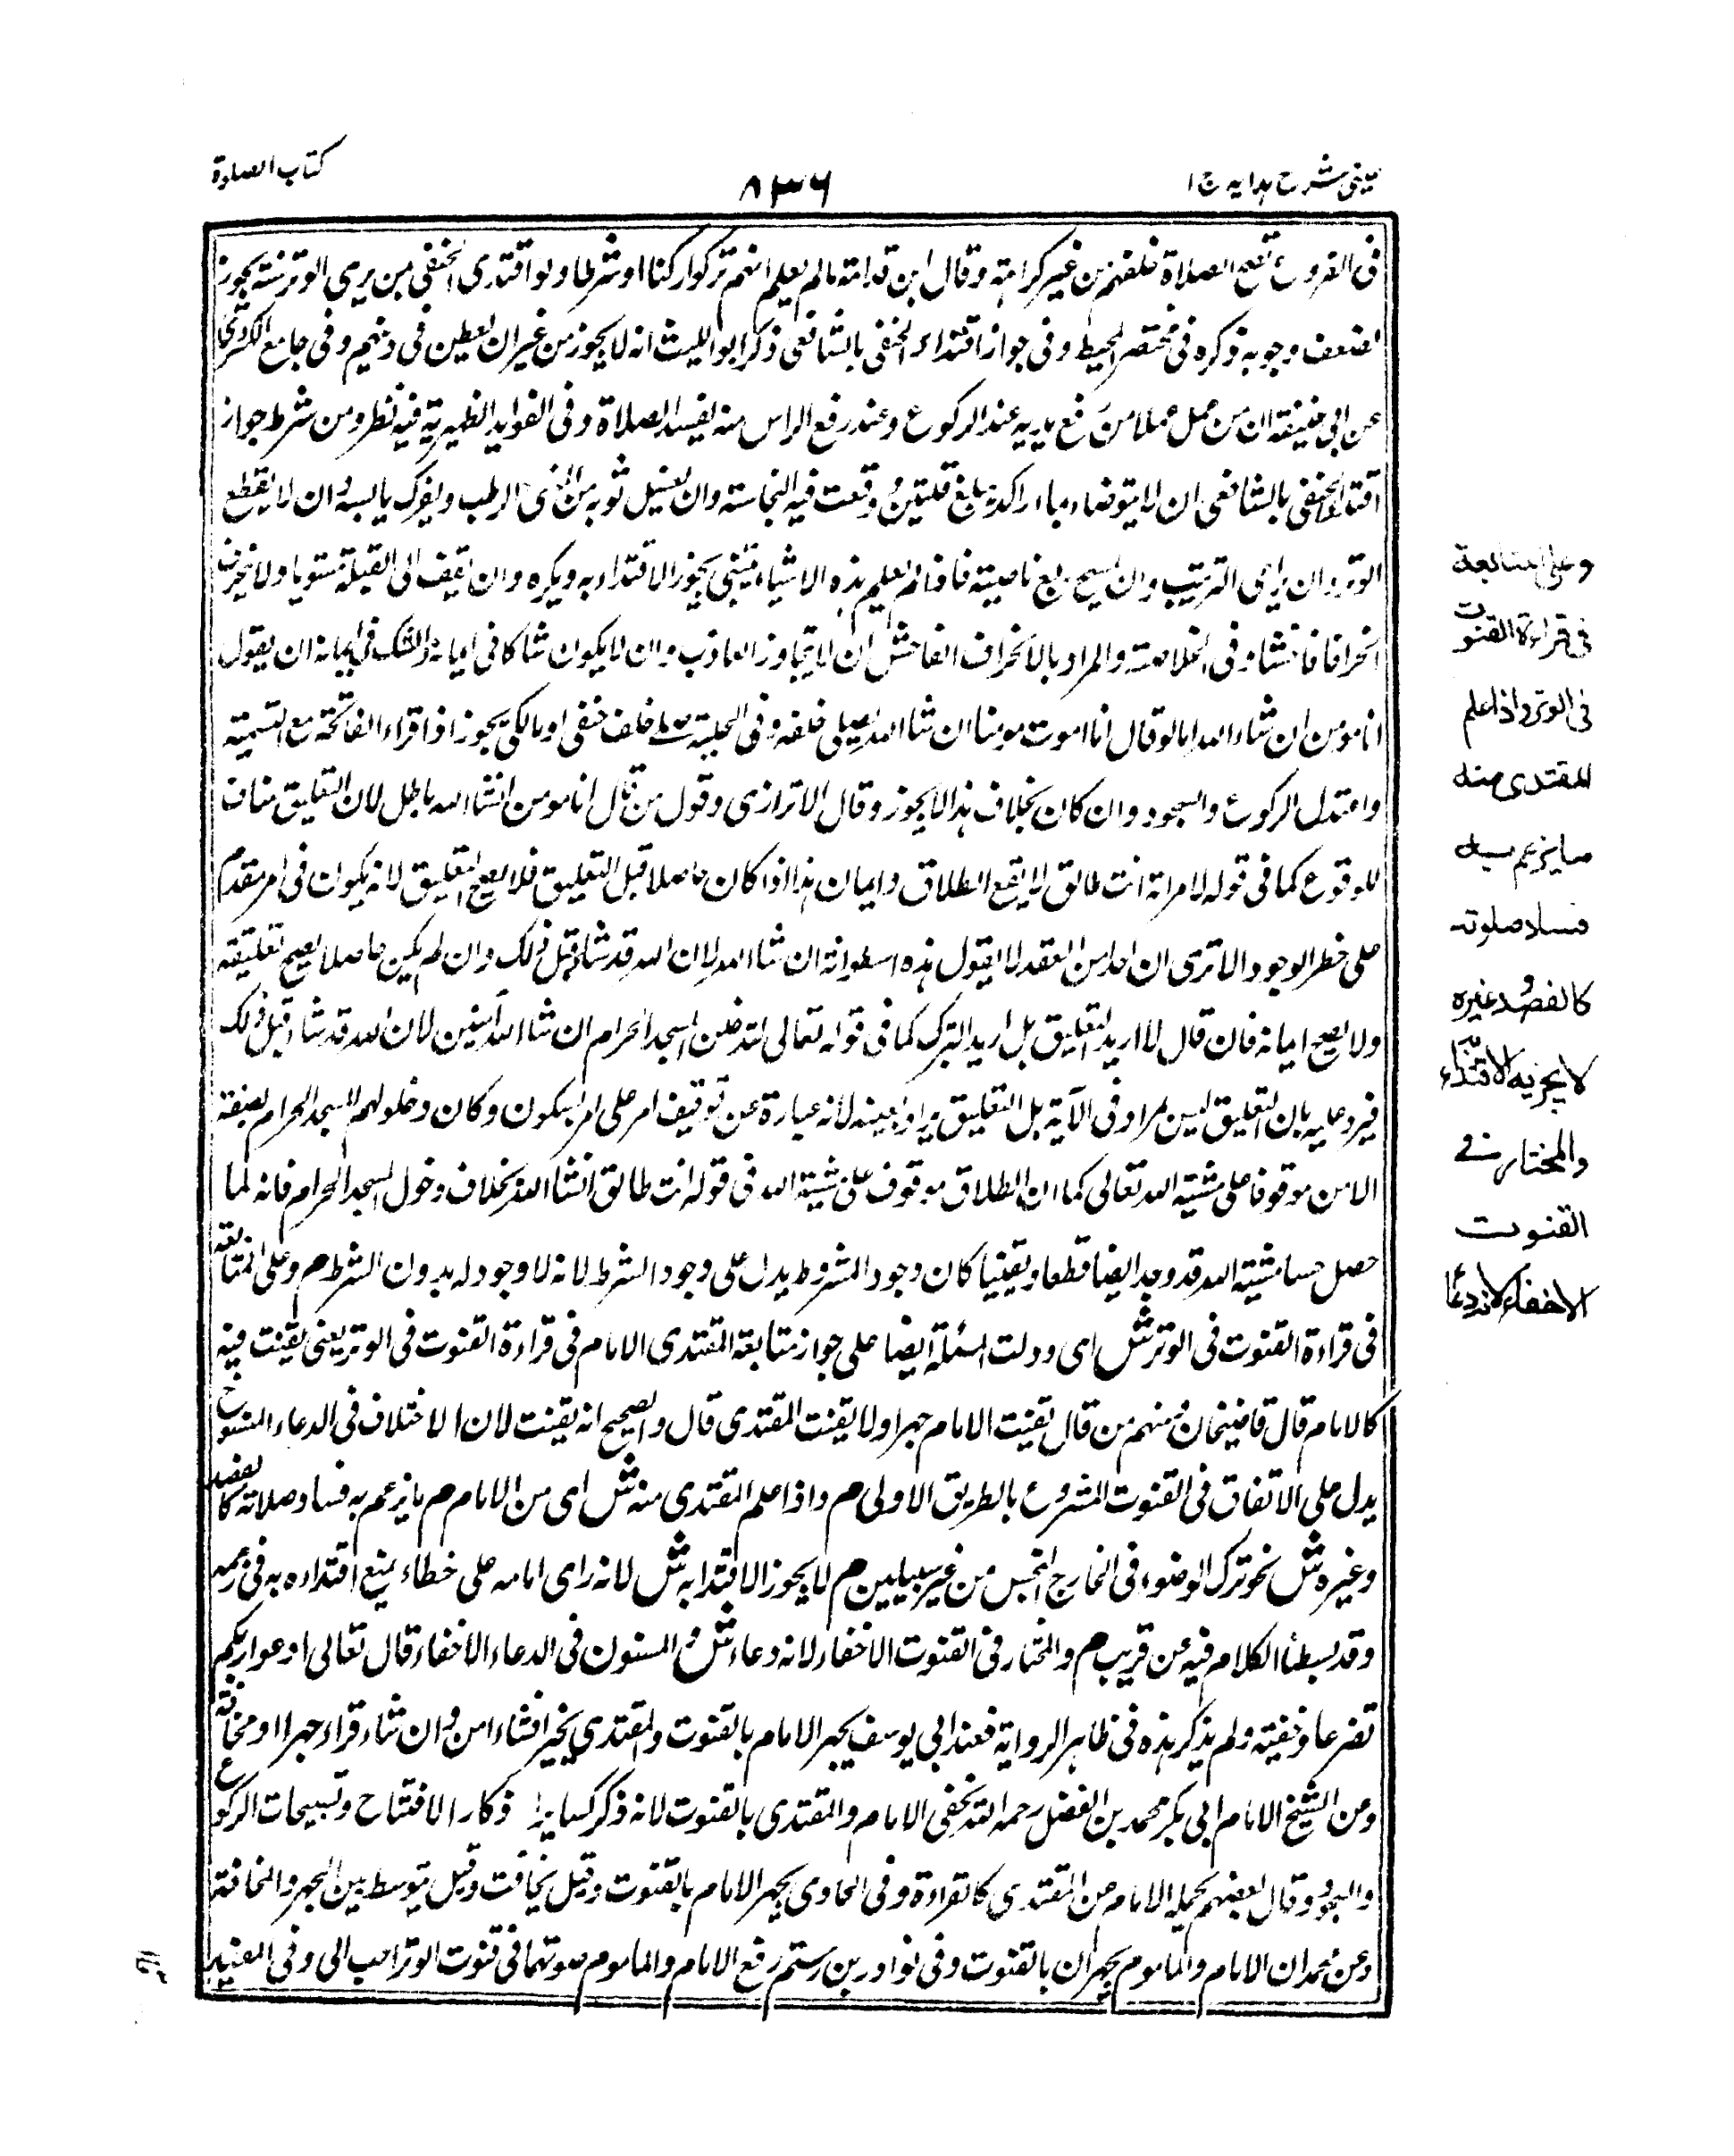 عینی شرح ہدایہ ج ۱
۸۳۶
کتاب الصلوة
فی الفروع تصح الصلاة خلفهم من غیر کراهة وقال ابن قدامة مالم یعلم انهم ترکوا رکنا او شرطا ولو اقتدی الحنفی بمن یری الوتر سنة یجوز
لضعف وجوبه ذکره فی مختصر المحیط وفی جواز اقتداء الحنفی بالشافعی ذکر ابو اللیث انه لا یجوز من غیر ان یطعن فی دینهم وفی جامع الکردری
عن ابی حنیفة ان من عمل عملا من رفع یدیه عند الرکوع وعند رفع الراس منه یفسد الصلاة وفی الفواید الظهیریة فیه نظر ومن شرط جواز
اقتداء الحنفی بالشافعی ان لا یتوضاء بماء راکد بلغ قلتین وقعت فیه النجاسة وان یغسل ثوبه من المنی الرطب ویفرک یابسه وان لا یقطع
الوتر وان یراعی الترتیب وان یمسح ربع ناصیته فاذا لم یعلم هذه الاشیاء بیقین یجوز الاقتداء به ویکره وان یقف الی القبلة مستویا ولا ینحرف
انحرافا فاحشا وفی الخلاصة والمراد بالانحراف الفاحش ان لا یتجاوز المغارب وان لا یکون شاکا فی ایمانه والشک فی ایمانه ان یقول
انا مومن ان شاء الله اما لو قال انا اموت مومنا ان شاء الله یصلی خلفه وفی الحلیة صلی خلف حنفی او مالکی یجوز اذا قراء الفاتحة مع التسمیة
واعتدل الرکوع والسجود وان کان بخلاف هذا لا یجوز وقال الاترازی وقول من قال انا مومن انشاء الله باطل لان التعلیق مناف
للوقوع کما فی قوله لامراته انت طالق لا یقع الطلاق وایمان هذا اذا کان حاصلا قبل التعلیق فلا یصح التعلیق لانه یکون فی امر مقدم
علی خطر الوجود الا تری ان احدا من العقد لا یقول هذه اسطوانة ان شاء الله لان الله قد شاء قبل ذلک وان لم یکن حاصلا یصح تعلیقه
ولا یصح ایمانه فان قال لا ارید التعلیق بل ارید التبرک کما فی قوله تعالی لتدخلن المسجد الحرام ان شاء الله آمنین لان الله قد شاء قبل ذلک
فیرد علیه بان التعلیق لیس بمراد فی الآیة بل التعلیق یراد بعینه لانه عبارة عن توقیف امر علی امر سیکون وکان دخولهم المسجد الحرام بصفة
الامن موقوفا علی مشیة الله تعالی کما ان الطلاق موقوف علی مشیة الله فی قوله انت طالق انشاء الله بخلاف دخول المسجد الحرام فانه لما
حصل حسا مشیة الله قد وجد ایضا قطعا ویقینا کان وجود المشروط یدل علی وجود الشرط لانه لا وجود له بدون الشرط م وعلی المتابعة
فی قراءة القنوت فی الوتر ش ای ودلت المسئلة ایضا علی جواز متابعة المقتدی الامام فی قراءة القنوت فی الوتر یعنی یقنت فیه
کالامام قال قاضیخان ومنهم من قال یقنت الامام جهرا ولا یقنت المقتدی قال والصحیح انه یقنت لان الاختلاف فی الدعاء المنسوخ
یدل علی الاتفاق فی القنوت المشروع بالطریق الاولی م واذا علم المقتدی منه ش ای من الامام م ما یزعم به فساد صلاته کالفصد
وغیره ش نحو ترک الوضوء فی الخارج النجس من غیر سبیلین م لا یجوز الاقتدا به ش لانه رای امامه علی خطاء یمنع اقتداءه به فی زعمه
وقد بسطنا الکلام فیه عن قریب م والمختار فی القنوت الاخفاء لانه دعاء ش والمسنون فی الدعاء الاخفاء قال تعالی ادعوا ربکم
تضرعا وخفیة ولم یذکر هذه فی ظاهر الروایة فعند ابی یوسف یجهر الامام بالقنوت والمقتدی یخیر ان شاء امن وان شاء قراء جهرا او مخافتة
وعن الشیخ الامام ابی بکر محمد بن الفضل رحمه الله یخفی الامام والمقتدی بالقنوت لانه ذکر کسایر اذکار الافتتاح وتسبیحات الرکوع
والسجود وقال بعضهم یحمله الامام عن المقتدی کالقراءة وفی الحاوی یجهر الامام بالقنوت وقیل یخافت وقیل یتوسط بین الجهر والمخافتة
وعن محمد ان الامام والماموم یجهران بالقنوت وفی نوادر بن رستم رفع الامام والماموم صوتهما فی قنوت الوتر احب الی وفی المفید
وعلی المتابعة
فی قراءة القنوت
فی الوتر واذا علم
المقتدی منه
ما یزعم به
فساد صلوته
کالفصد وغیره
لا یجزیه الاقتداء به
والمختار فی
القنوت
الاخفاء لانه دعاء